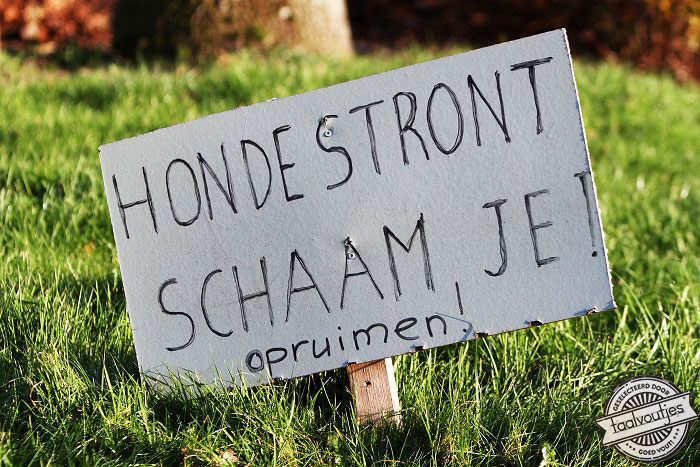 HONDESTRONT
SCHAAM JE!
opruimen!
GESELECTEERD DOOR
taalvoutjes
GOED VOUT!